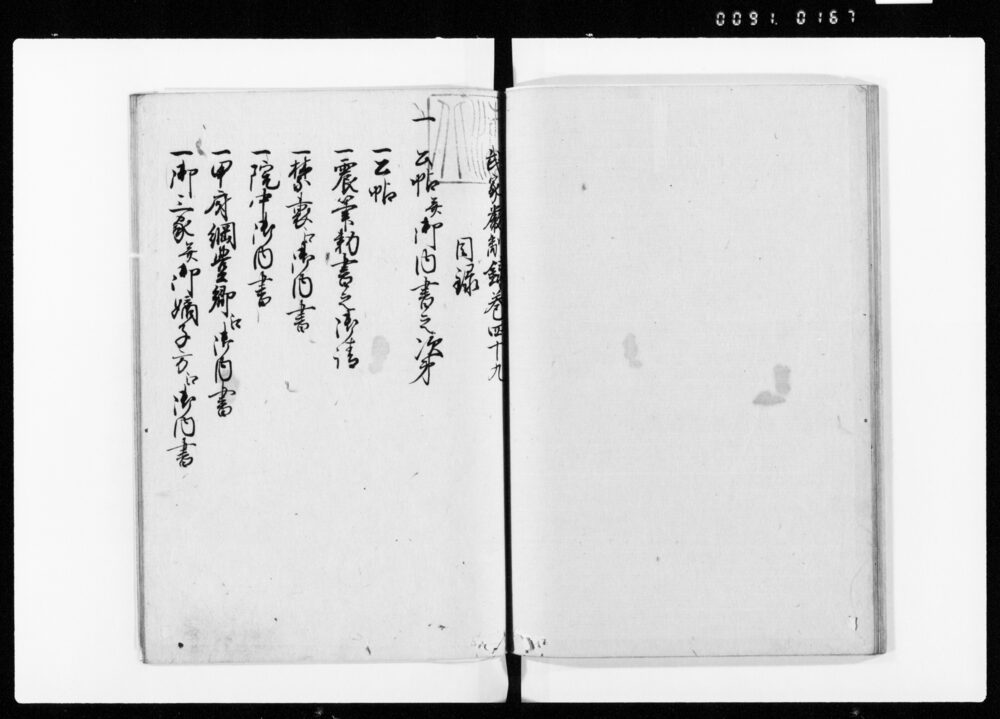 0091.0167
武家厳制録巻四十九
目録
一 公帖并御内書之次第
一公帖
一震筆勅書之御請
一禁裏江御内書
一院中御内書
一甲府綱豊卿江御内書
一御三家并御嫡子方江御内書